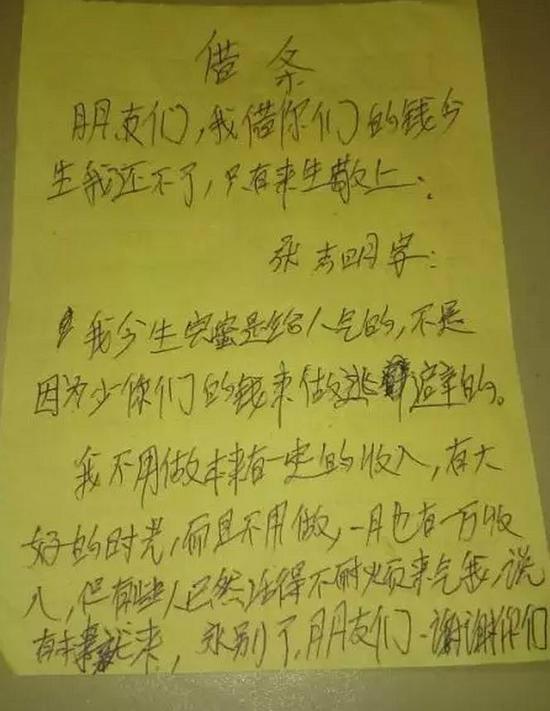 借条
朋友们,我借你们的钱今
生我还不了,只有来生敬上:
张志明字:
我今生完蛋是给人气的,不是
因为少你们的钱来做逃避的。
我不用做本来有一定的收入,有大
好的时光,而且不用做,一月也有一万收
入,但有些人已然活得不耐烦来气我,说
有本事就来,永别了,朋友们-谢谢你们